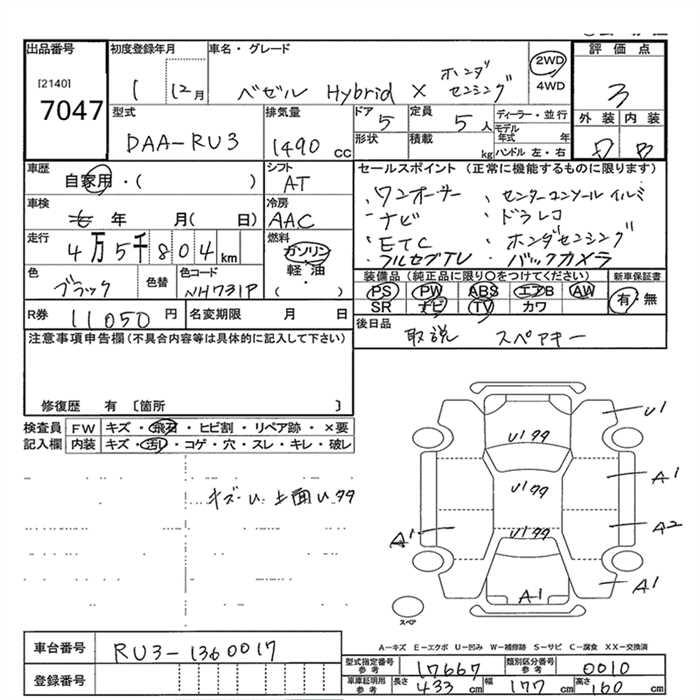 出品番号 初度登録年月 車名・グレード 評価点
[2140]
7047
1 12月 ベゼル Hybrid × ホンダセンシング 2WD 4WD 3
型式 排気量 ドア 定員 ディーラー・並行 外装 内装
DAA-RU3 1490 CC 5 5人 モデル年式 年
形状 積載 kg ハンドル 左・右 B
車歴 シフト セールスポイント (正常に機能するものに限ります)
自家用・( ) AT ・ワンオーナー ・センターコンソールイルミ
車検 冷房 ・ナビ ・ドラレコ
年 月( 日) AAC ・ETC ・ホンダセンシング
走行 燃料 ・フルセグTV ・バックカメラ
4万5千804km ガソリン
軽・油
( ・ )
色 色替 色コード 装備品 (純正品に限り○をつけてください) 新車保証書
ブラック NH731P PS PW ABS エアB AW 有・無
SR ナビ TV カワ
R券 11050円 名変期限 月 日 後日品
取説 スペアキー
注意事項申告欄(不具合内容等は具体的に記入して下さい)
修復歴 有 〔箇所 〕
検査員 FW キズ・飛石・ヒビ割・リペア跡・×要
記入欄 内装 キズ・汚れ・コゲ・穴・スレ・キレ・破レ
キズ・U 上面Uタタ
U1タタ
U1
U1タタ
A1
A1
U1タタ
A2
A1
A1
スペア
A-キズ E-エクボ U-凹み W-補修跡 S-サビ C-腐食 XX-交換済
車台番号 RU3-1360017
型式指定番号 参考 17667 類別区分番号 参考 0010
登録番号
車庫証明用 参考 長さ 433 cm 幅 177 cm 高さ 160 cm